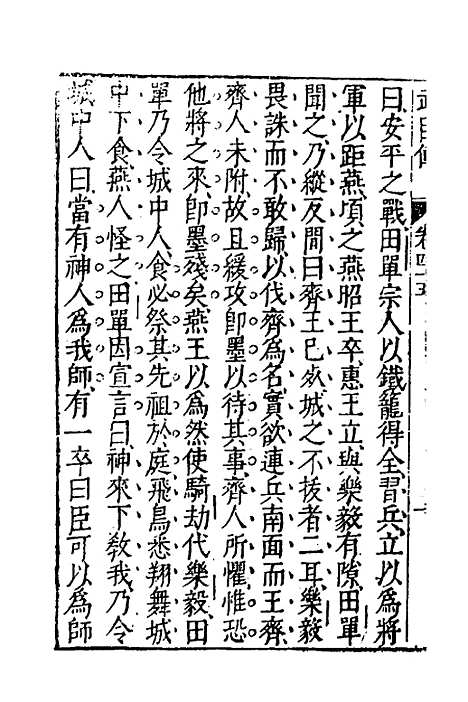 曰安平之戰田單宗人以鐵籠得全習兵立以為將
軍以距燕頃之燕昭王卒惠王立與樂毅有隙田單
聞之乃縱反間曰齊王已死城之不拔者二耳樂毅
畏誅而不敢歸以伐齊為名實欲連兵南面而王齊
齊人未附故且緩攻即墨以待其事齊人所懼惟恐
他將之來即墨殘矣燕王以為然使騎劫代樂毅田
單乃令城中人食必祭其先祖於庭飛鳥悉翔舞城
中下食燕人怪之田單因宣言曰神來下教我乃令
城中人曰當有神人為我師有一卒曰臣可以為師